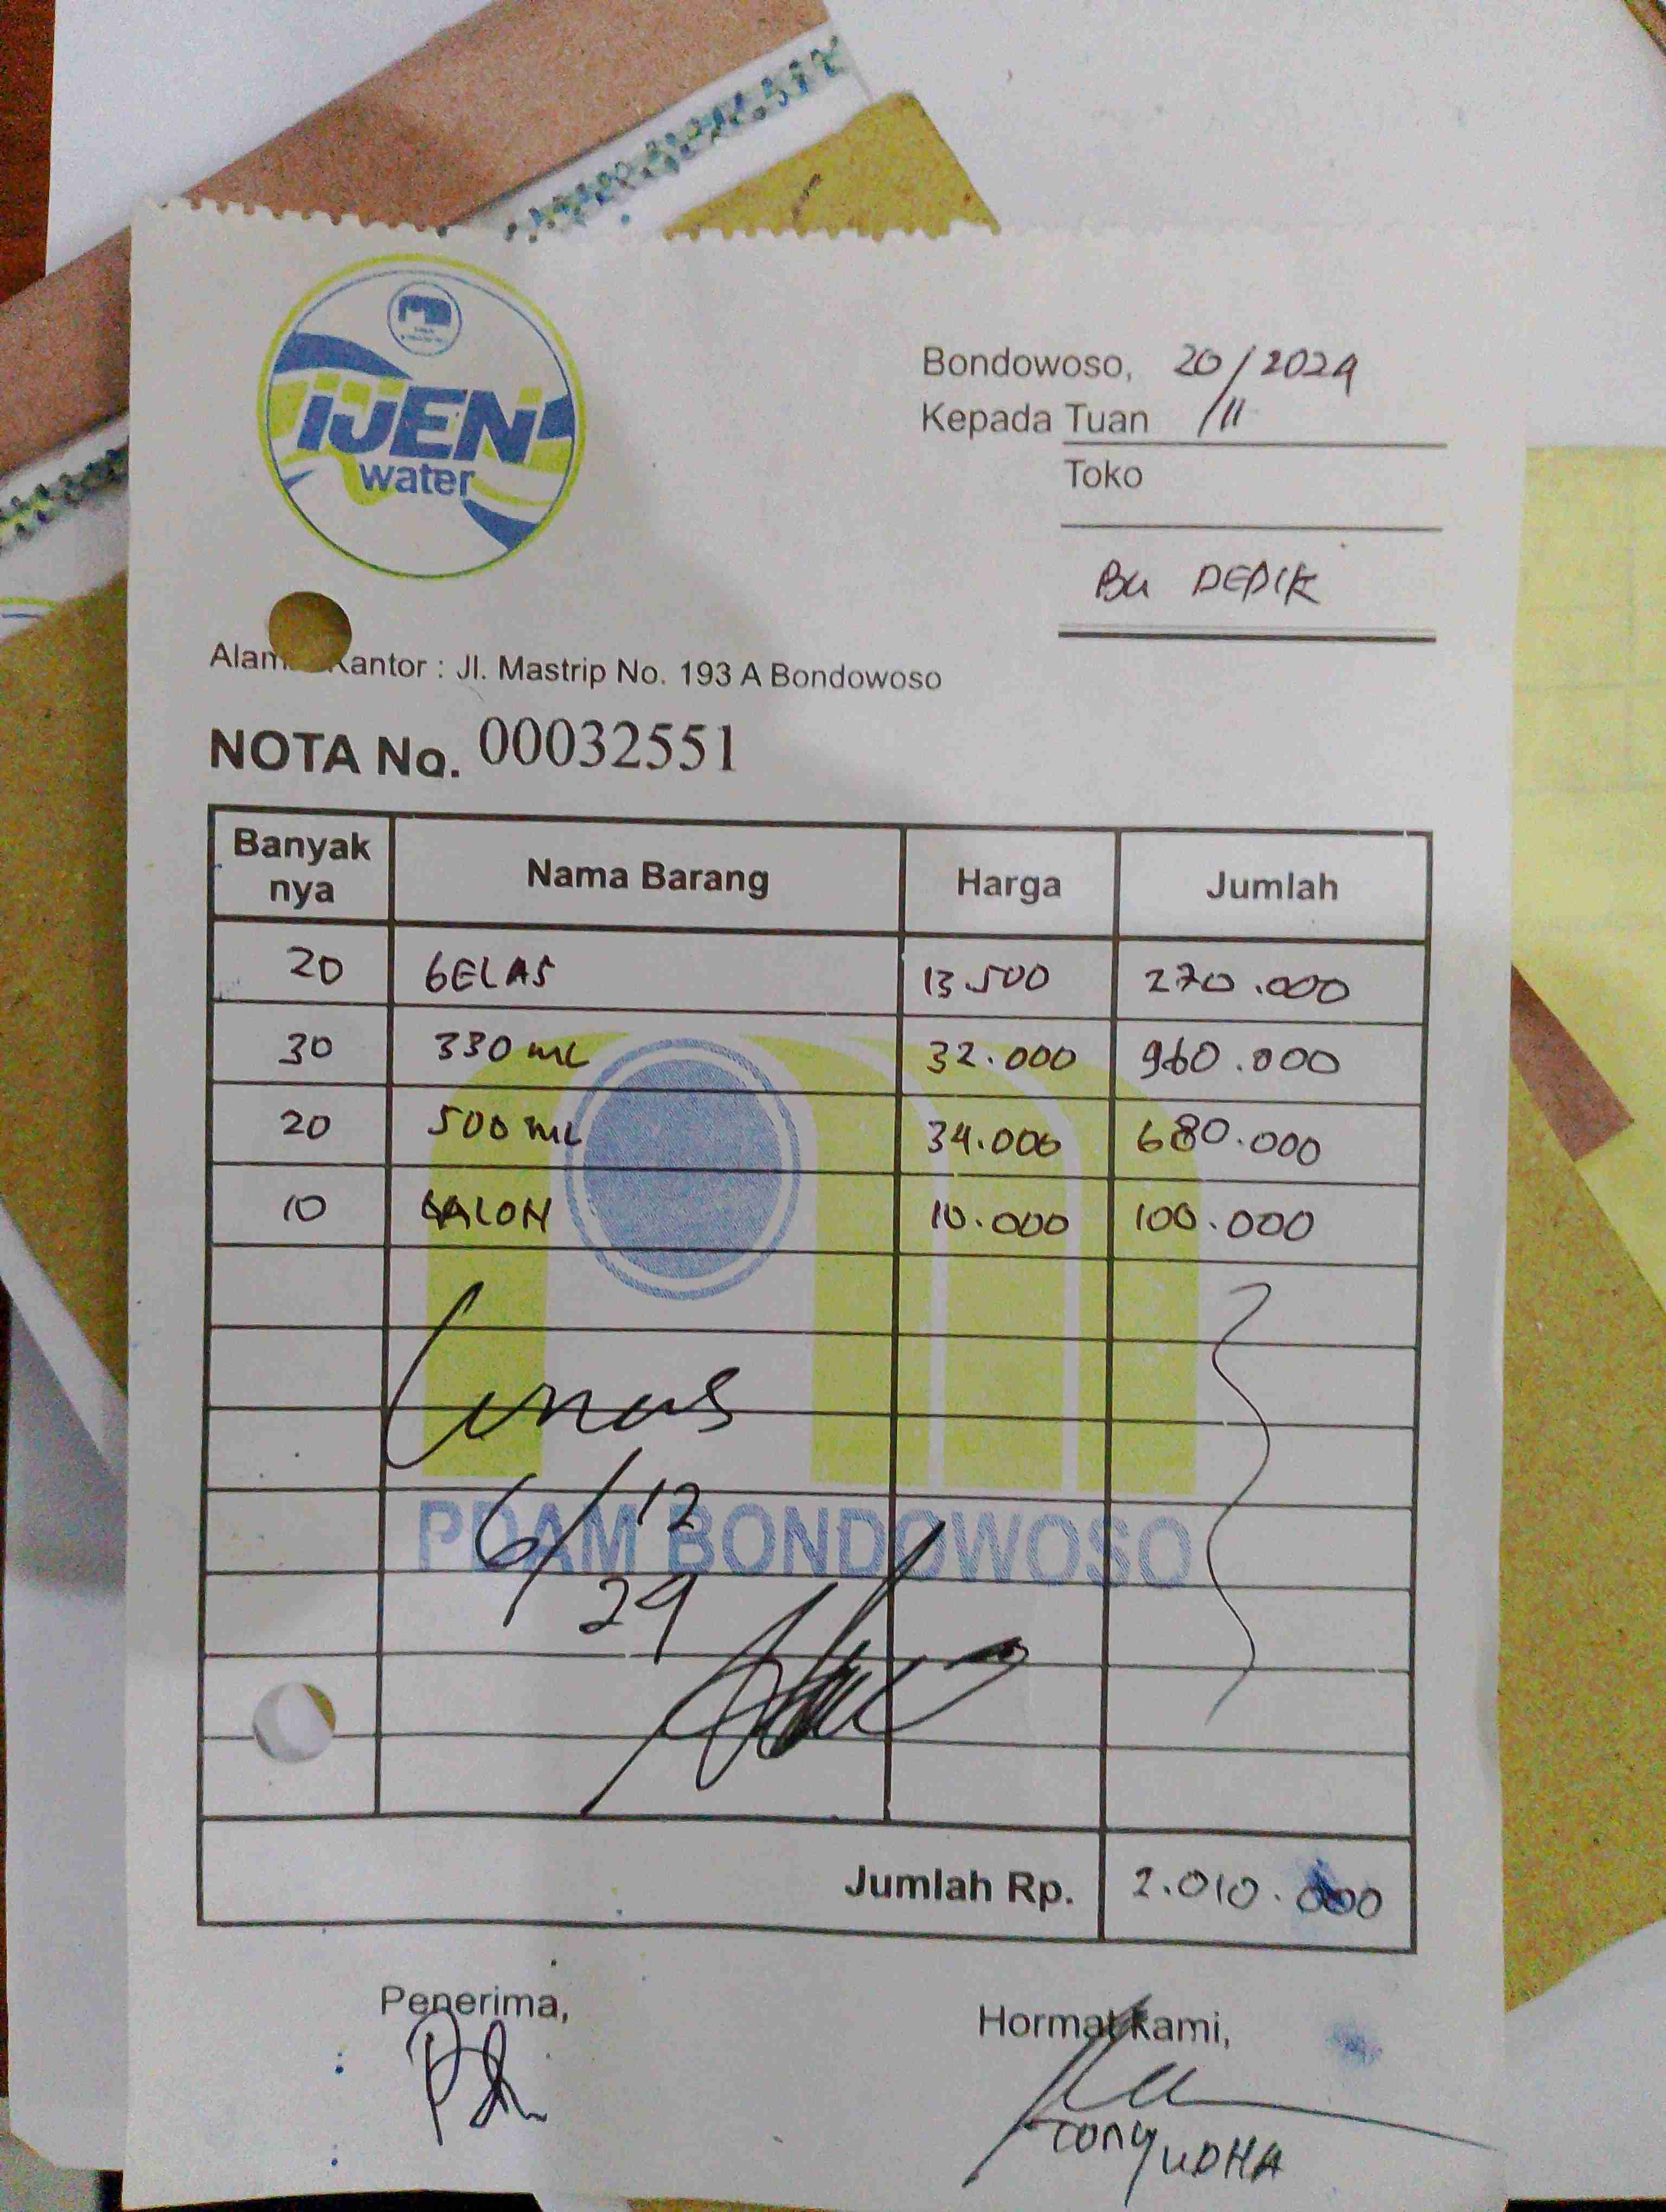 IJEN
water
Bondowoso, 20/11 2024
Kepada Tuan
Toko
Bu DEDIK
Kantor : Jl. Mastrip No. 193 A Bondowoso
NOTA No. 00032551
Banyak nya Nama Barang Harga Jumlah
20 GELAS 13.500 270.000
30 330 ML 32.000 960.000
20 500 ML 34.000 680.000
10 GALON 10.000 100.000
Lunas
6/12
24
PDAM BONDOWOSO
Jumlah Rp. 2.010.000
Penerima,
Hormat Kami,
TONY YUDHA